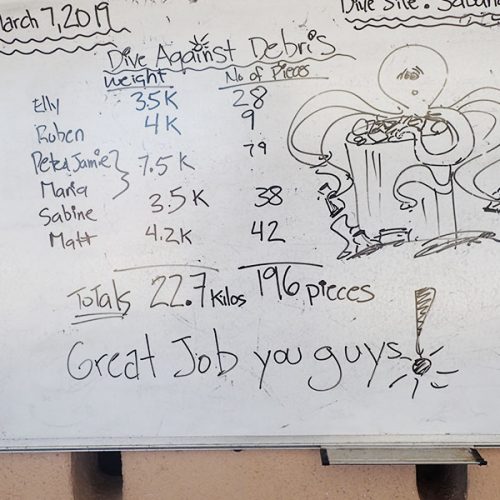 March 7, 2019
Dive Site:
Dive Against Debris
Weight No of Pieces
Elly 3.5K 28
Ruben 4K 9
Pete & Jamie 7.5K 79
Maria
Sabine 3.5K 38
Matt 4.2K 42
Totals 22.7 Kilos 196 pieces
Great Job you guys!